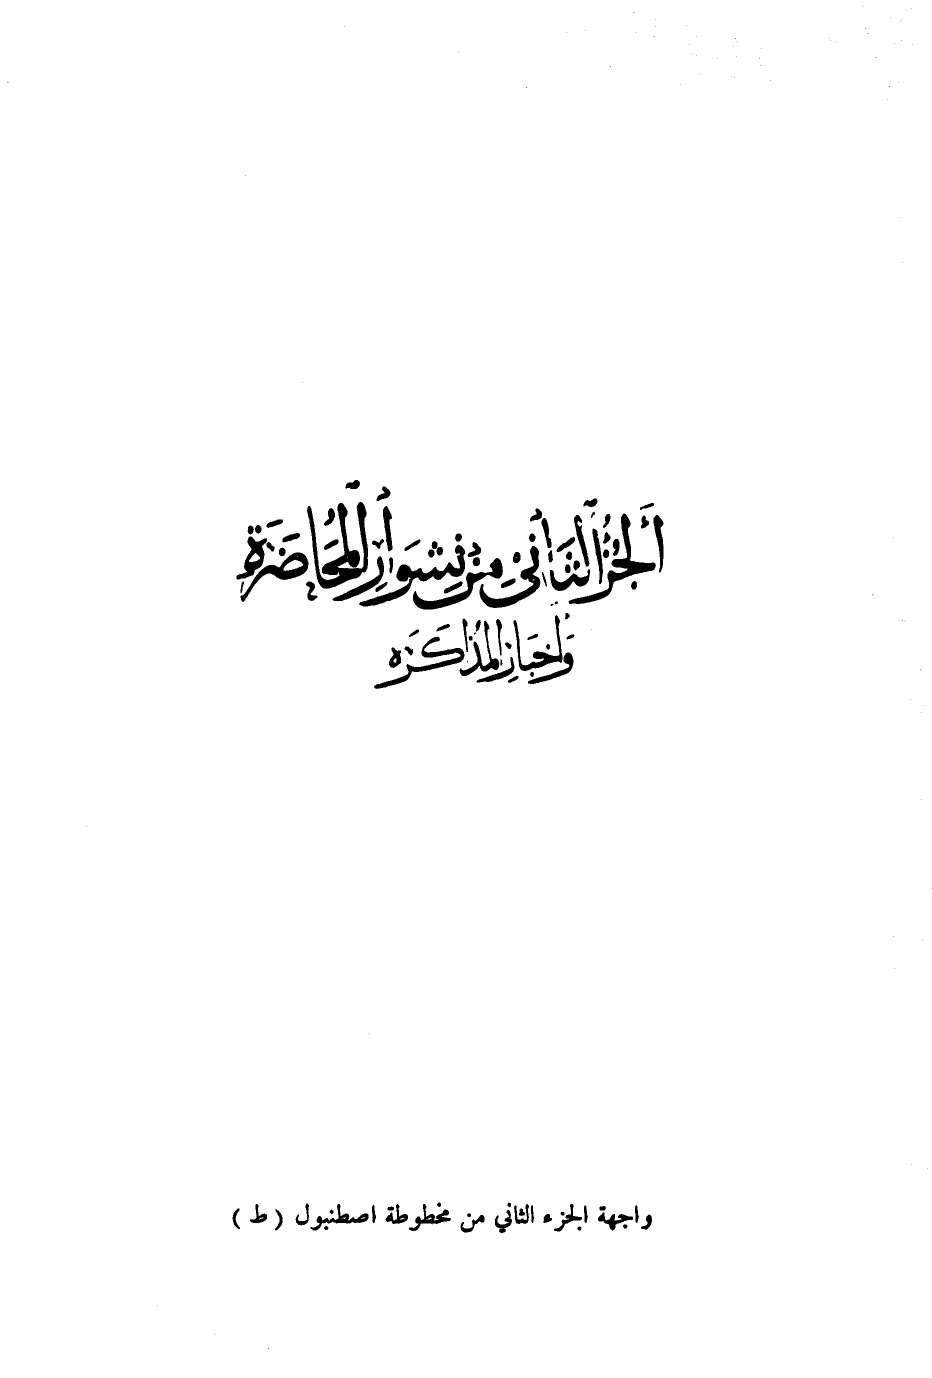 أَلجُزْءُ الثَّانِي مِنْ نِشْوَارِ المُحَاضَرَةِ
وَأَخْبَارِ المُذَاكَرَه
واجهة الجزء الثاني من مخطوطة اصطنبول ( ط )